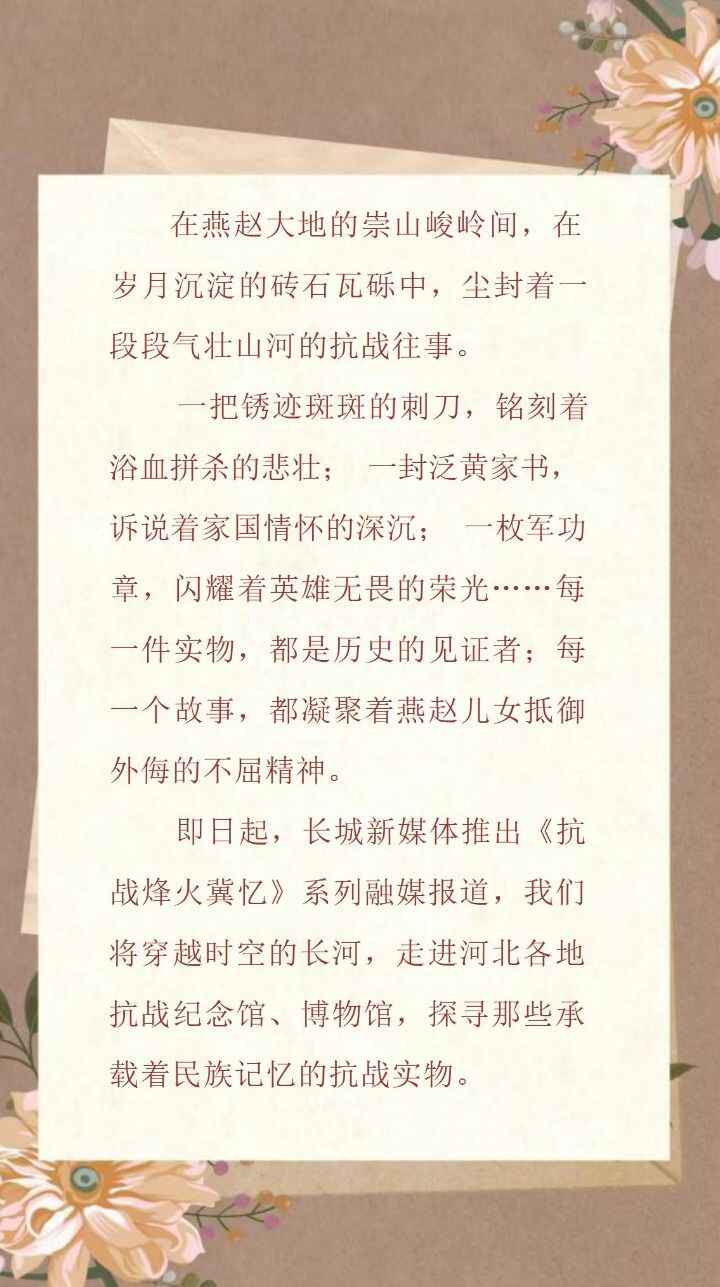 在燕赵大地的崇山峻岭间，在
岁月沉淀的砖石瓦砾中，尘封着一
段段气壮山河的抗战往事。
一把锈迹斑斑的刺刀，铭刻着
浴血拼杀的悲壮； 一封泛黄家书，
诉说着家国情怀的深沉； 一枚军功
章，闪耀着英雄无畏的荣光……每
一件实物，都是历史的见证者；每
一个故事，都凝聚着燕赵儿女抵御
外侮的不屈精神。
即日起，长城新媒体推出《抗
战烽火冀忆》系列融媒报道，我们
将穿越时空的长河，走进河北各地
抗战纪念馆、博物馆，探寻那些承
载着民族记忆的抗战实物。